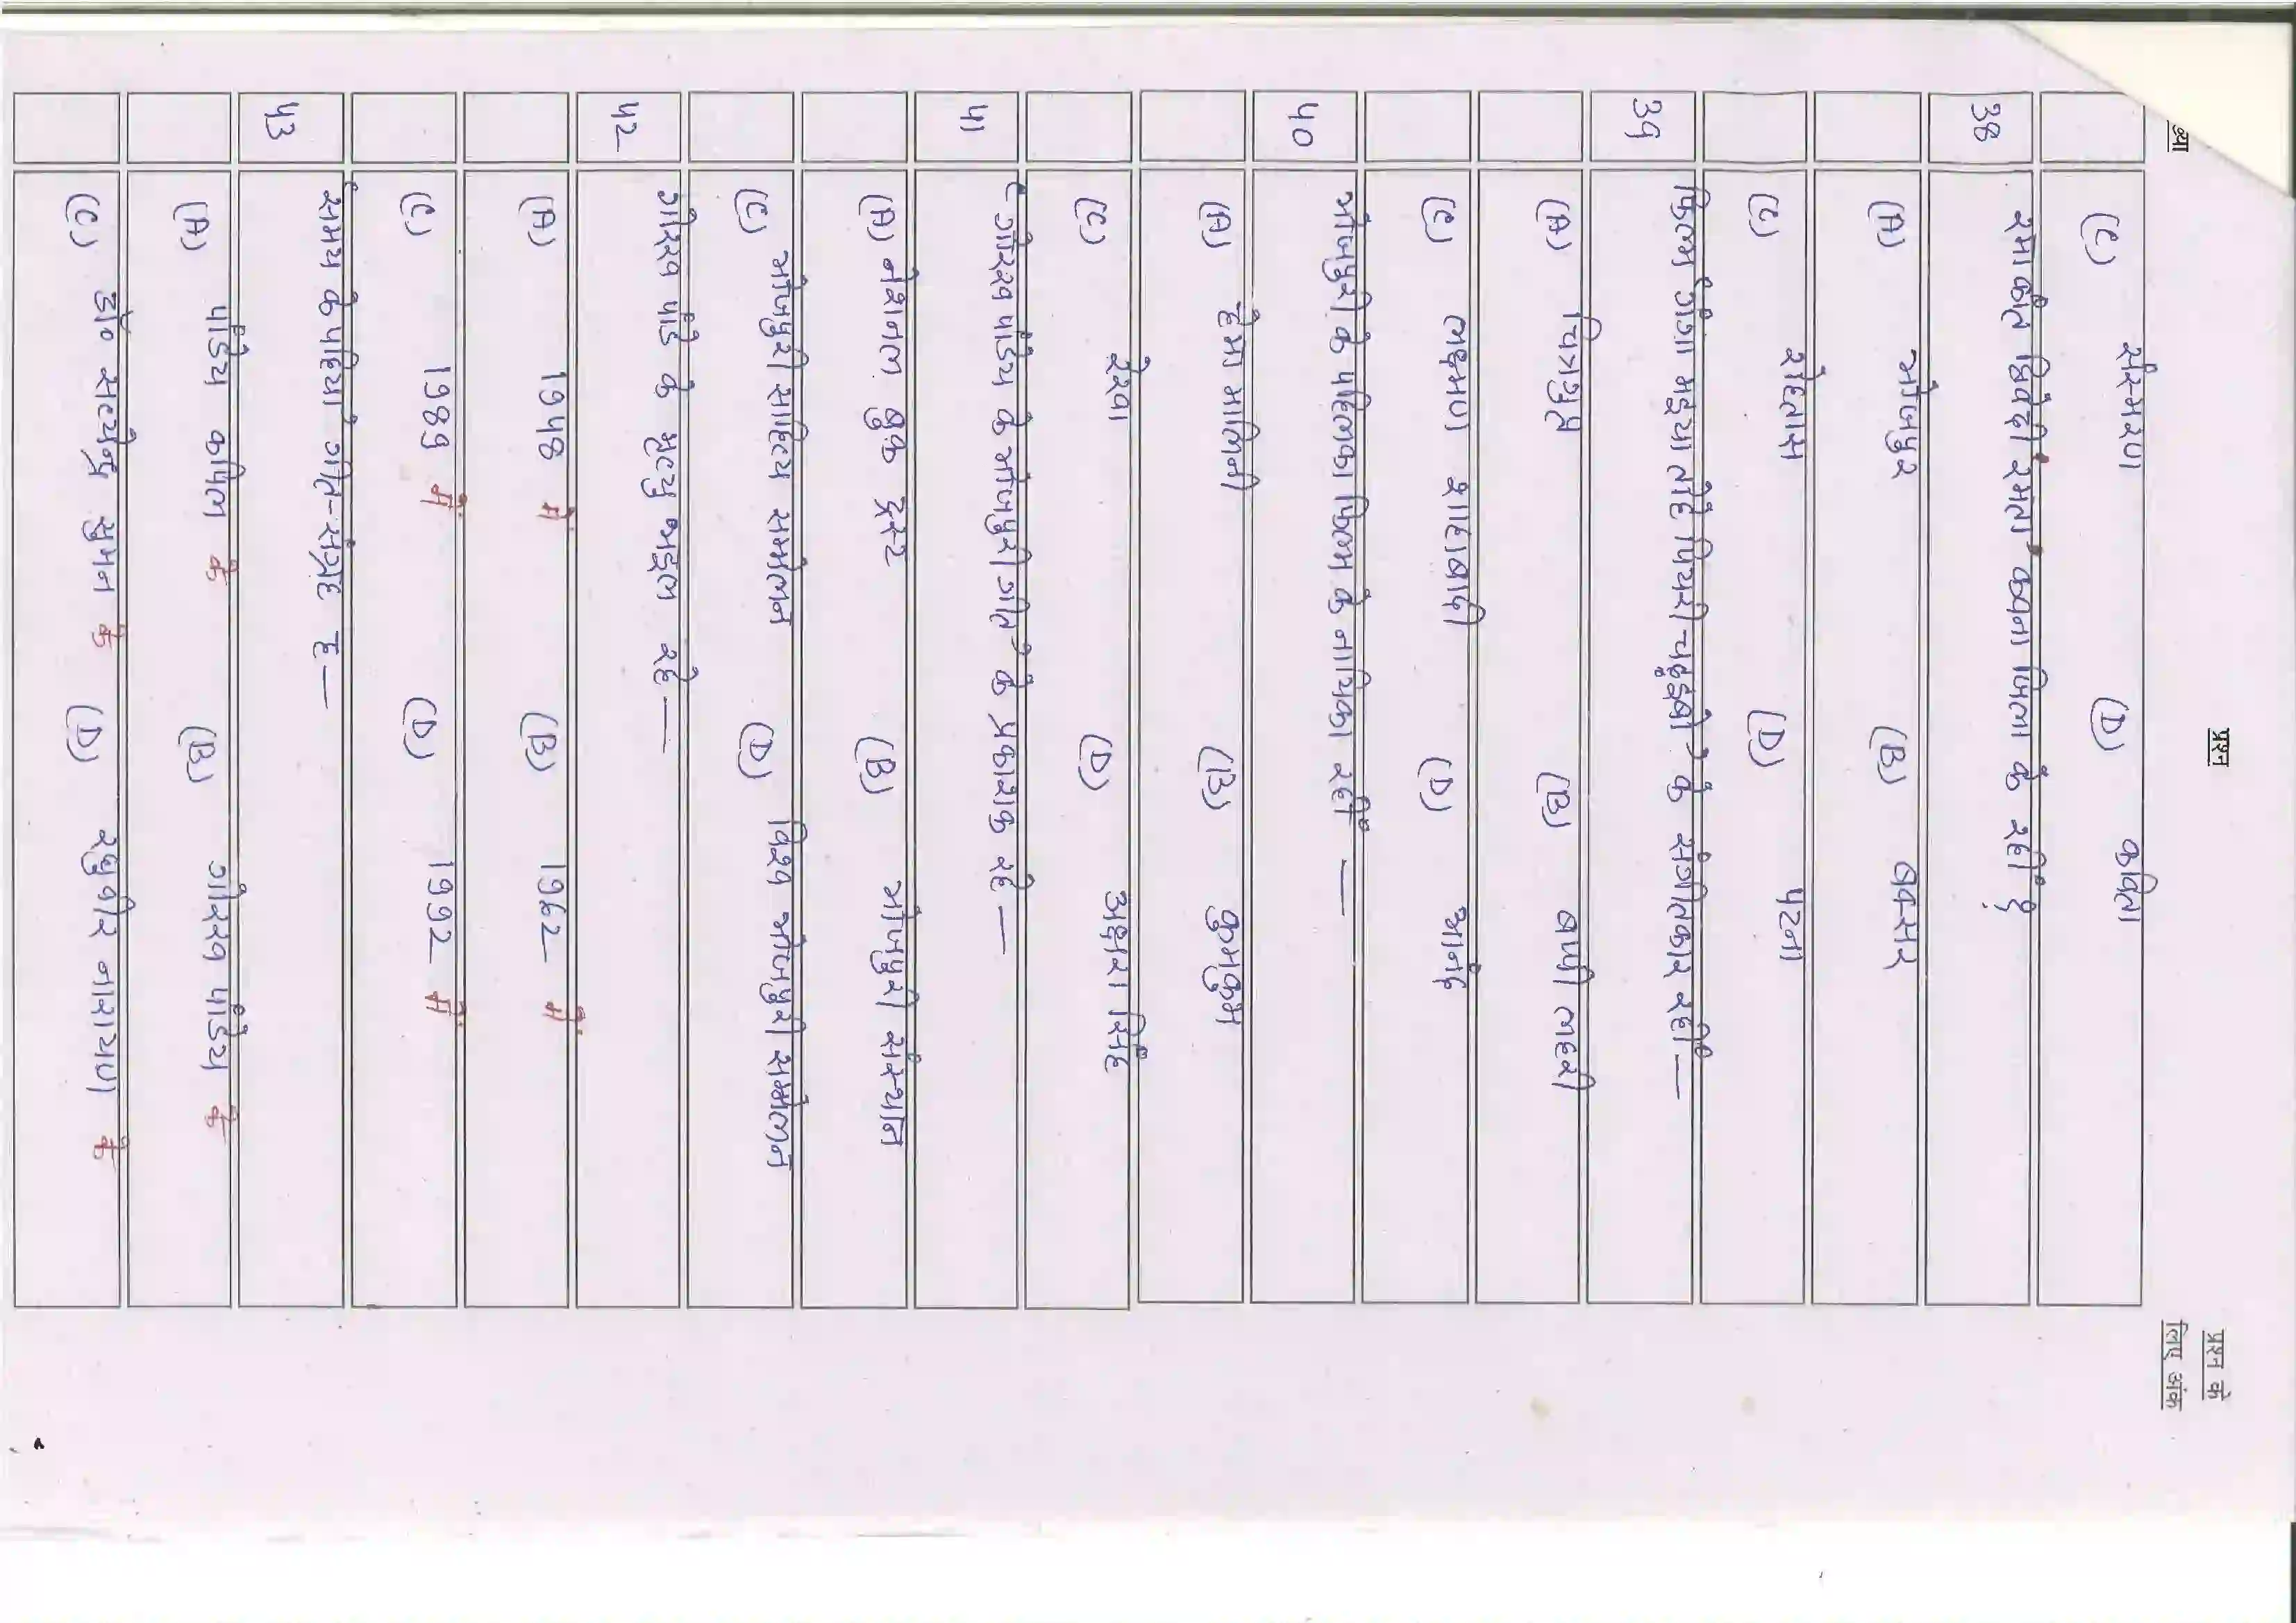 ख्या प्रश्न प्रश्न के
लिए अंक
(C) संस्मरण (D) कविता
38 रमाकांत द्विवेदी 'रमता' कवना जिला के रहीं ?
(A) भोजपुर (B) बक्सर
(C) रोहतास (D) पटना
39 फिल्म 'गंगा मइया तोहे पियरी चढ़इबो' के संगीतकार रहीं —
(A) चित्रगुप्त (B) बप्पी लहरी
(C) लक्ष्मण शाहाबादी (D) आनंद
40 भोजपुरी के पहिलका फिल्म के नायिका रहीं —
(A) हेमा मालिनी (B) कुमकुम
(C) रेखा (D) अक्षरा सिंह
41 'गोरख पांडेय के भोजपुरी गीत' के प्रकाशक रहे —
(A) नेशनल बुक ट्रस्ट (B) भोजपुरी संस्थान
(C) भोजपुरी साहित्य सम्मेलन (D) विश्व भोजपुरी सम्मेलन
42 गोरख पांडे के मृत्यु भइल रहे —
(A) 1948 में (B) 1962 में
(C) 1989 में (D) 1992 में
43 'समय के पहिया' गीत-संग्रह ह —
(A) पांडेय कपिल के (B) गोरख पांडेय के
(C) डॉ० सत्येन्द्र सुमन के (D) रघुवीर नारायण के